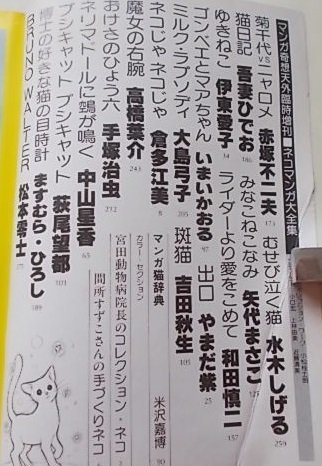 マンガ奇想天外臨時増刊■ネコマンガ大全集
菊千代vsニャロメ 赤塚不二夫 173
むせび泣く猫 水木しげる 259
猫日記 吾妻ひでお 186
みなこねこなみ 矢代まさこ 127
ゆきねこ 伊東愛子 34
ライダーより愛をこめて 和田慎二 157
ゴンベエとマアちゃん いまいかおる 97
出口 やまだ紫 25
ミルク・ラプソディ 大島弓子 205
斑猫 吉田秋生 105
ネコじゃ・ネコじゃ 倉多江美 8
魔女の右腕 高橋葉介 243
マンガ猫辞典 米沢嘉博 90
おけさのひょう六 手塚治虫 272
カラー・セクション
宮田動物病院長のコレクション・ネコ
間所すずこさんの手づくりネコ
ネリマドールに鵼が鳴く 中山星香 65
プシキャット プシキャット 萩尾望都 101
博士の好きな猫の目時計 ますむら・ひろし 189
BRUNO WALTER 松本零士